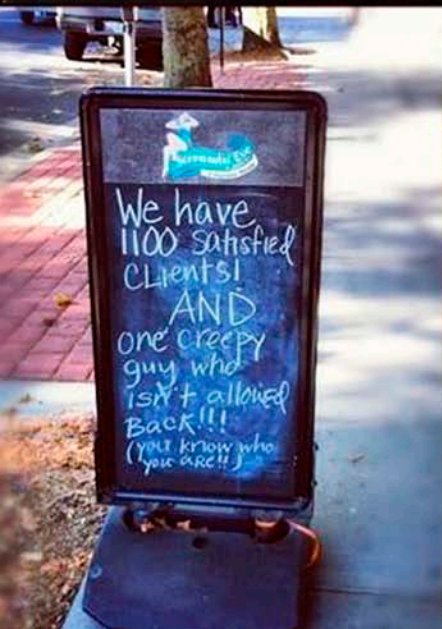 We have
1100 satisfied
CLients!
AND
one creepy
guy who
isn't allowed
BACK!!!
(you know who
you ARE!!)